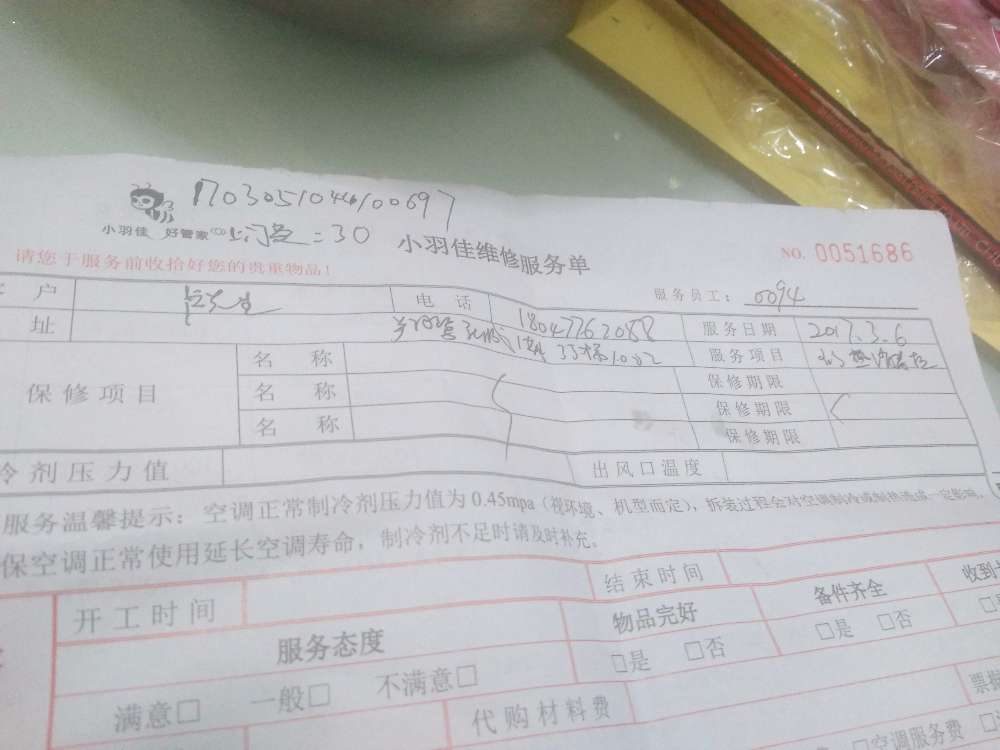 1703051044100697
小羽佳 好管家 上门费=30 小羽佳维修服务单 NO. 0051686
请您于服务前收拾好您的贵重物品!
服务员工: 0094
户 电话 18047762088 服务日期 2017.3.6
址 服务项目
保修项目 名称 保修期限
名称 保修期限
名称 保修期限
冷剂压力值 出风口温度
服务温馨提示:空调正常制冷剂压力值为0.45mpa(视环境、机型而定),拆装过程会对空调制冷或制热造成一定影响,
保空调正常使用延长空调寿命,制冷剂不足时请及时补充。
开工时间 结束时间
服务态度 物品完好 备件齐全 收到
满意□ 一般□ 不满意□ □是 □否 □是 □否
代购材料费 □空调服务费 票据